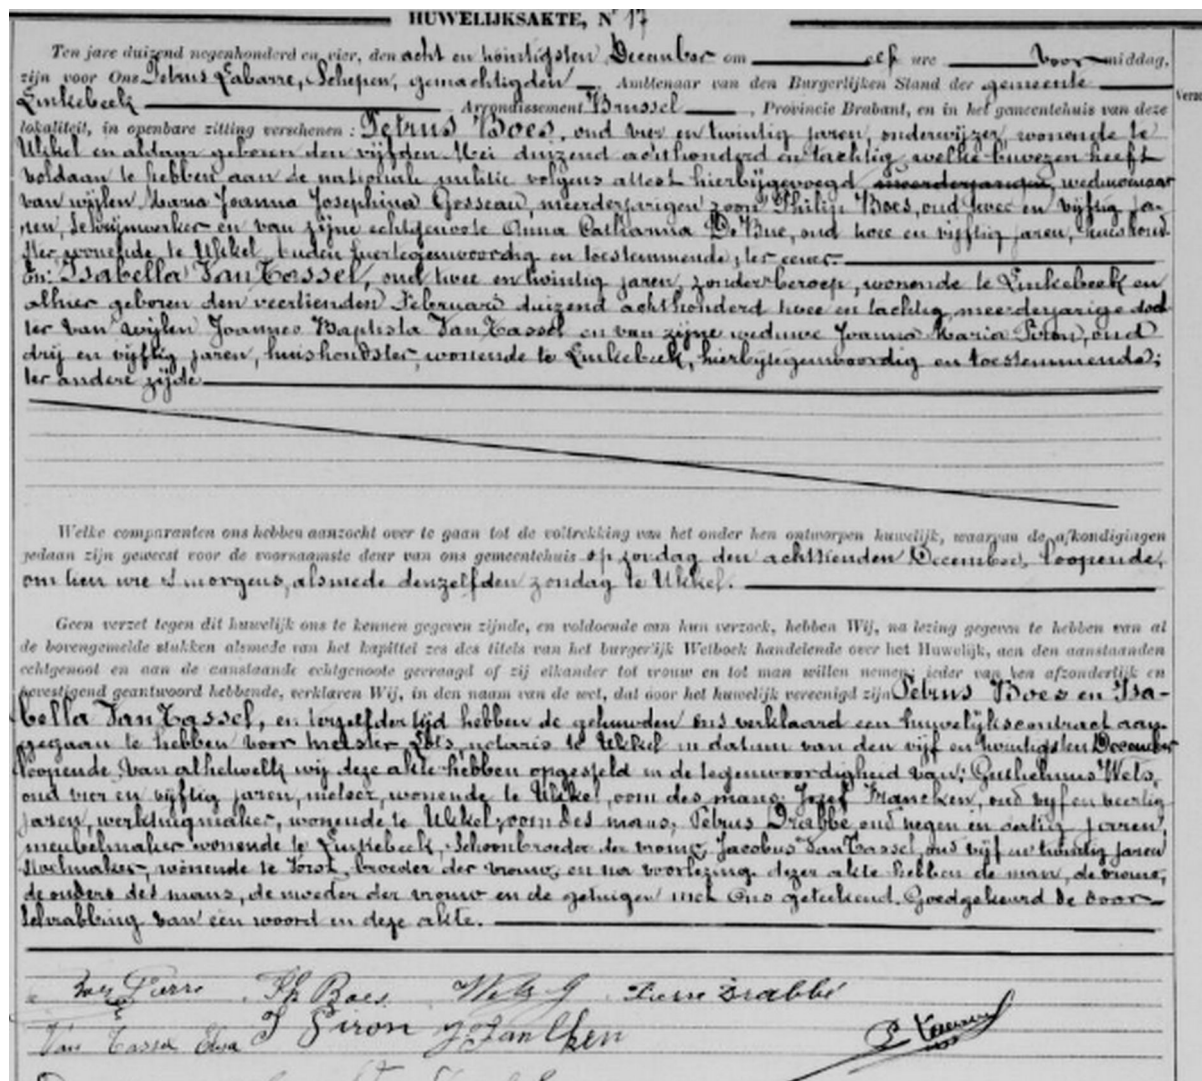 HUWELIJKSAKTE, N° 17
Ten jare duizend negenhonderd en vier, den acht en twintigsten December om elf ure voor middag,
zijn voor Ons Petrus Labarre, Schepen, gemachtigden Ambtenaar van den Burgerlijken Stand der gemeente
Linkebeek Arrondissement Brussel, Provincie Brabant, en in het gemeentehuis van deze
lokaliteit, in openbare zitting verschenen : Petrus Boes, oud vier en twintig jaren, onderwijzer, wonende te
Ukkel en aldaar geboren den vijfden Mei duizend achthonderd en tachtig, welke bewezen heeft
voldaan te hebben aan de nationale militie volgens attest hierbijgevoegd, meerderjarigen, weduwenaar
van wijlen Maria Joanna Josephina Gosseau, meerderjarigen zoon Philip Boes, oud twee en vijftig ja-
ren, schrijnwerker en van zijne echtgenoote Anna Catharina De Bue, oud twee en vijftig jaren, huishoud-
ster, wonende te Ukkel, beiden hiertegenwoordig en toestemmende; ter eener.
En: Isabella Van Tassel, oud twee en twintig jaren, zonder beroep, wonende te Linkebeek en
alhier geboren den veertienden Februari duizend achthonderd twee en tachtig, meerderjarige doch
ter van wijlen Joannes Baptista Van Tassel en van zijne weduwe Joanna Maria Piron, oud
drij en vijftig jaren, huishoudster, wonende te Linkebeek, hierbijtegenwoordig en toestemmende;
ter andere zijde
Welke comparanten ons hebben aanzocht over te gaan tot de voltrekking van het onder hen ontworpen huwelijk, waarvan de afkondigingen
gedaan zijn geweest voor de voornaamste deur van ons gemeentehuis op zondag den achttienden December, loopende,
om tien ure 's morgens, alsmede denzelfden zondag te Ukkel.
Geen verzet tegen dit huwelijk ons te kennen gegeven zijnde, en voldoende aan hun verzoek, hebben Wij, na lezing gegeven te hebben van al
de bovengemelde stukken alsmede van het kapittel zes des titels van het burgerlijk Wetboek handelende over het Huwelijk, aen den aanstaanden
echtgenoot en aan de aanstaande echtgenoote gevraagd of zij elkander tot vrouw en tot man willen nemen; ieder van hen afzonderlijk en
bevestigend geantwoord hebbende, verklaren Wij, in den naam van de wet, dat door het huwelijk vereenigd zijn Petrus Boes en Isa-
bella Van Tassel, en terzelfder tijd hebben de gehuwden ons verklaard een huwelijkscontract aan-
gegaan te hebben voor meester notaris te Ukkel in datum van den vijf en twintigsten December
loopende. Van alhetwelk wij deze akte hebben opgesteld in de tegenwoordigheid van: Guilielmus Wets,
oud vier en vijftig jaren, metser, wonende te Ukkel, oom des mans; Jozef Francken, oud vijf en veertig
jaren, werktuigmaker, wonende te Ukkel, oom des mans; Petrus Drabbe, oud negen en dertig jaren,
meubelmaker wonende te Linkebeek, schoonbroeder der vrouw, Jacobus Van Tassel, oud vijf en twintig jaren
wonende te Vorst, broeder der vrouw, en na voorlezing dezer akte hebben de man, de vrouw,
de ouders des mans, de moeder der vrouw en de getuigen met Ons geteekend. Goedgekeurd de door-
schrabbing van een woord in deze akte.
Boes Pierre Ph Boes Wets G Pierre Drabbé
Van Tassel Elisa J Piron